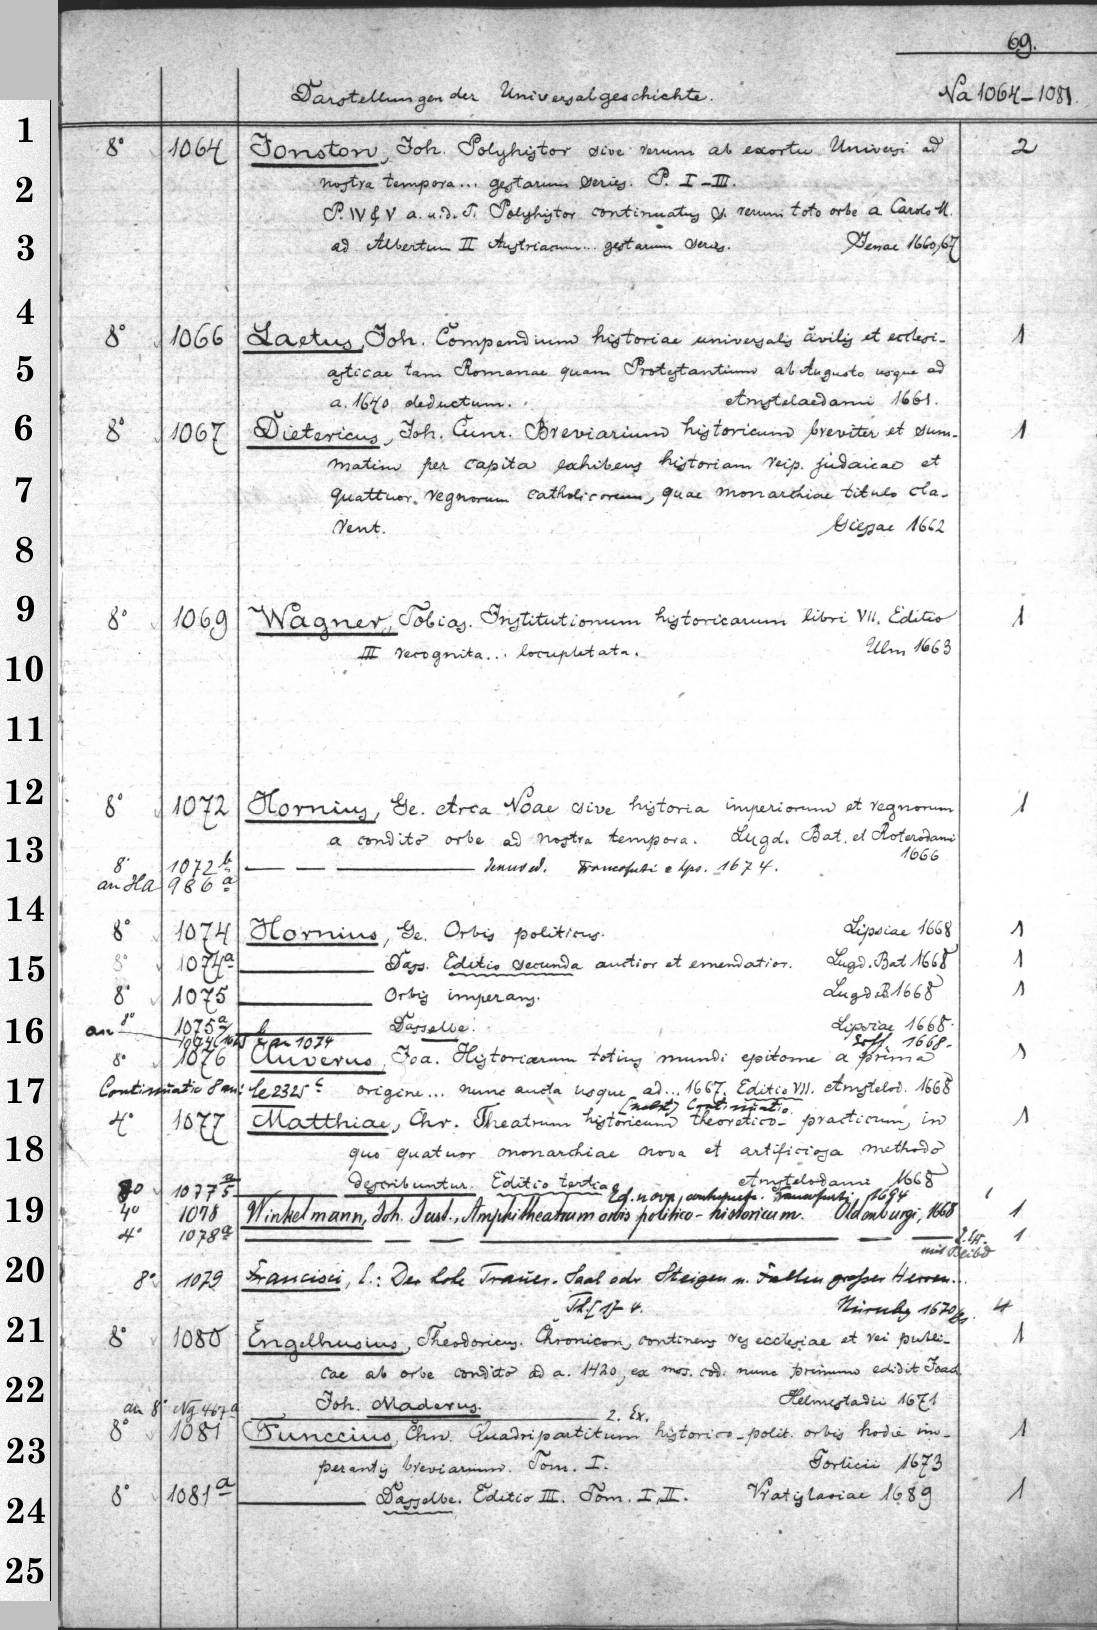 69.
Darstellungen der Universalgeschichte. Na 1064-1081.
1
8° 1064 Jonston, Joh. Polyhistor sive rerum ab exortu Universi ad 2
2
nostra tempora... gestarum series. P. I-III.
P. IV & V a. u. d. T. Polyhistor continuatus s. rerum toto orbe a Carolo M.
3
ad Albertum II Austriacum... gestarum series. Jenae 1660,67
4
8° 1066 Laetus, Joh. Compendium historiae universalis civilis et ecclesi- 1
5
asticae tam Romanae quam Protestantium ab Augusto usque ad
a. 1640 deductum. Amstelaedami 1661.
6
8° 1067 Dietericus, Joh. Cunr. Breviarium historicum breviter et sum- 1
matim per capita exhibens historiam reip. judaicae et
7
quattuor regnorum catholicorum, quae monarchiae titulo cla-
rent. Giessae 1662
8
9
8° 1069 Wagner, Tobias. Institutionum historicarum libri VII. Editio 1
III recognita... locupletata. Ulm 1663
10
11
12
8° 1072 Hornius, Ge. Arca Noae sive historia imperiorum et regnorum 1
a condito orbe ad nostra tempora. Lugd. Bat. et Roterodami
1666
13
8° 1072 b — — — denuo ed. Francofurti e Lps. 1674.
an Ha 986 a
14
8° 1074 Hornius, Ge. Orbis politicus. Lipsiae 1668 1
15
8° 1074 a — Dass. Editio secunda auctior et emendatior. Lugd. Bat 1668 1
8° 1075 — Orbis imperans. Lugd. B. 1668 1
16
an 8° 1075 a — Dasselbe. Lipsiae 1668.
b an 1074 1668.
8° 1076 Cluverus, Joa. Historiarum totius mundi epitome a prima 1
17
Continuatio 8 an: Le 2325 c origine... nunc aucta usque ad... 1667. Editio VII. Amstelod. 1668
(nebst) Continuatio.
4° 1077 Matthiae, Chr. Theatrum historicum theoretico-practicum, in 1
18
quo quatuor monarchiae nova et artificiosa methodo
describuntur. Editio tertia. Amstelodami 1668
1077 — Ed. nova, Francofurti, 1694
19
4° 1078 Winkelmann, Joh. Just., Amphitheatrum orbis politico-historicum. Oldenburgi, 1668 1
4° 1078 a — — — — — 1
20
8° 1079 Francisci, E.: Der hohe Trauer-Saal odr. Steigen u. Fallen großer Herren...
Th. [1]-4. Nürnbg 1670 4
21
8° 1080 Engelhusius, Theodoricus. Chronicon, continens res ecclesiae et rei publi- 1
cae ab orbe condito ad a. 1420, ex mss. cod. nunc primum edidit Joach.
22
Joh. Maderus. Helmstadii 1671
an 8° Ng 467 a — 2. Ex.
23
8° 1081 Funccius, Chn. Quadripartitum historico-polit. orbis hodie im- 1
perantis breviarium. Tom. I. Gorlicii 1673
24
8° 1081 a — Dasselbe. Editio III. Tom. I, II. Vratislaviae 1689 1
25